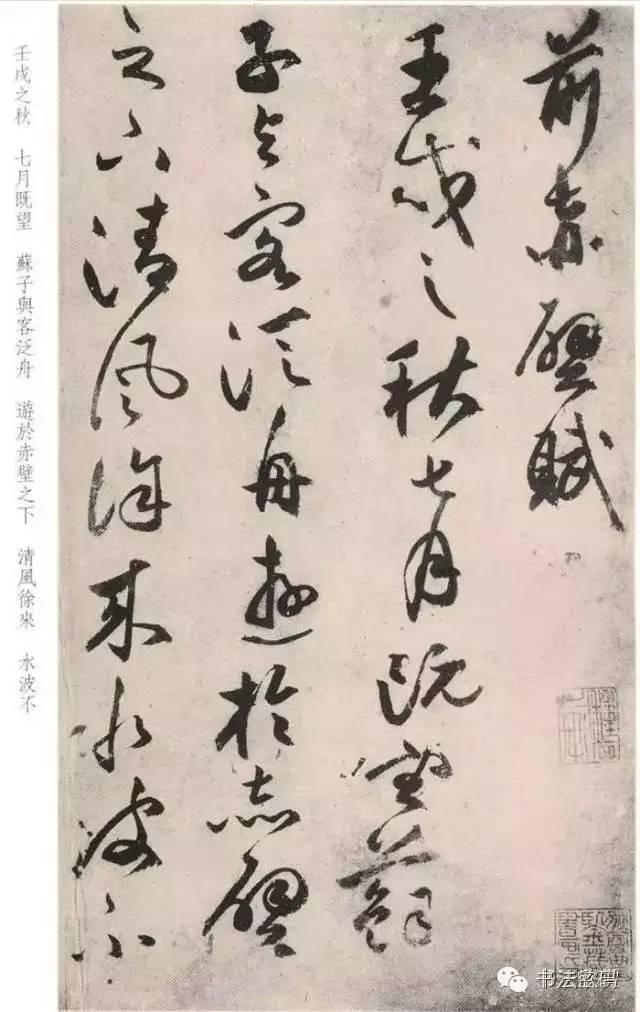 前赤壁賦
壬戌之秋七月既望蘇
子與客泛舟遊於赤壁
之下清風徐來水波不
壬戌之秋 七月既望 蘇子與客泛舟 遊於赤壁之下 清風徐來 水波不
书法密码